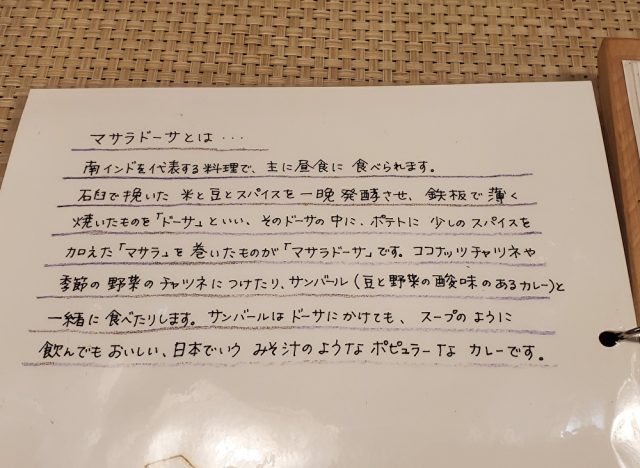 マサラドーサとは・・・
南インドを代表する料理で、主に昼食に食べられます。
石臼で挽いた 米と豆とスパイスを一晩発酵させ、鉄板で薄く
焼いたものを「ドーサ」といい、そのドーサの中に、ポテトに少しのスパイスを
加えた「マサラ」を巻いたものが「マサラドーサ」です。ココナッツチャツネや
季節の野菜のチャツネにつけたり、サンバール(豆と野菜の酸味のあるカレー)と
一緒に食べたりします。サンバールはドーサにかけても、スープのように
飲んでもおいしい、日本でいうみそ汁のようなポピュラーなカレーです。